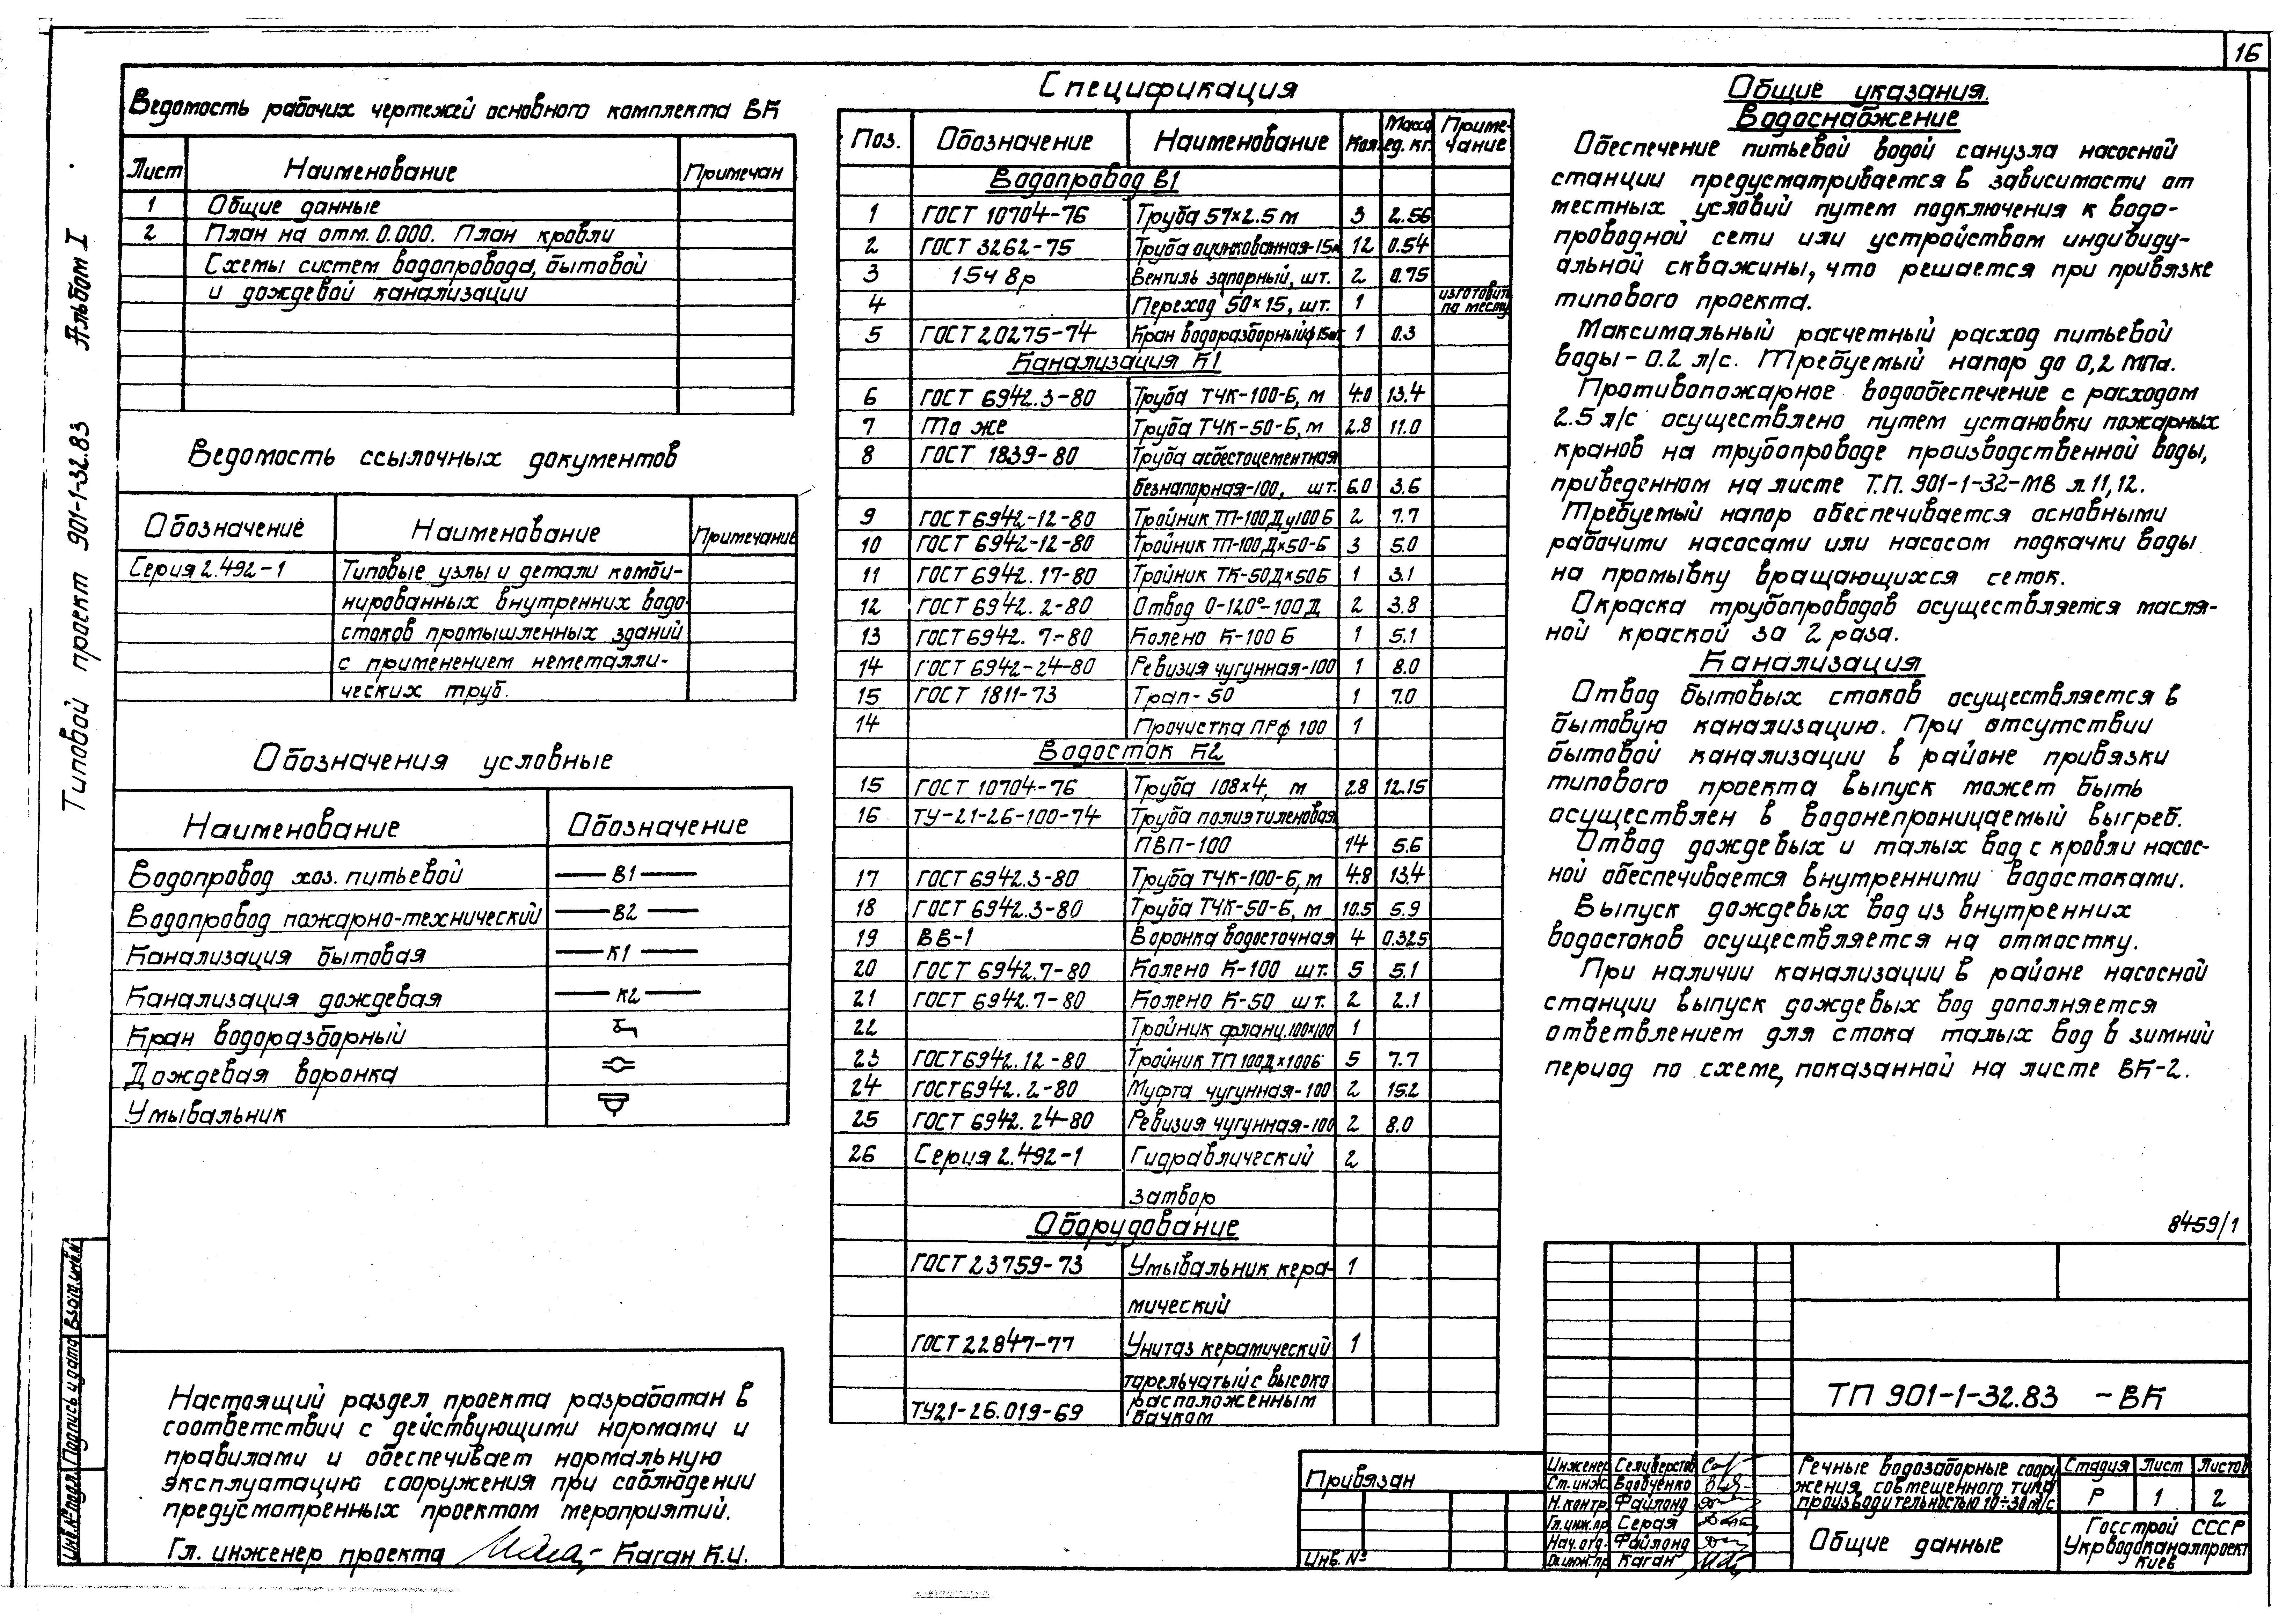 16
Альбом I
Типовой проект 901-1-32.83
Ведомость рабочих чертежей основного комплекта ВК
Лист Наименование Примечан
1 Общие данные
2 План на отм. 0.000. План кровли
Схемы систем водопровода, бытовой
и дождевой канализации
Ведомость ссылочных документов
Обозначение Наименование Примечание
Серия 2.492-1 Типовые узлы и детали комби-
нированных внутренних водо-
стоков промышленных зданий
с применением неметалли-
ческих труб.
Обозначения условные
Наименование Обозначение
Водопровод хоз. питьевой В1
Водопровод пожарно-технический В2
Канализация бытовая К1
Канализация дождевая К2
Кран водоразборный
Дождевая воронка
Умывальник
Настоящий раздел проекта разработан в
соответствии с действующими нормами и
правилами и обеспечивает нормальную
эксплуатацию сооружения при соблюдении
предусмотренных проектом мероприятий.
Гл. инженер проекта Каган К.И.
Взам.инв.№
Подпись и дата
Инв.№ подл.
Спецификация
Поз. Обозначение Наименование Кол. Масса ед. кг. Приме-чание
Водопровод В1
1 ГОСТ 10704-76 Труба 57×2.5 м 3 2.56
2 ГОСТ 3262-75 Труба оцинкованная-15м 12 0.54
3 15ч 8р Вентиль запорный, шт. 2 0.75
4 Переход 50×15, шт. 1 изготовить по месту
5 ГОСТ 20275-74 Кран водоразборный ф 15шт 1 0.3
Канализация К1
6 ГОСТ 6942.3-80 Труба ТЧК-100-Б, м 4.0 13.4
7 То же Труба ТЧК-50-Б, м 2.8 11.0
8 ГОСТ 1839-80 Труба асбестоцементная
безнапорная-100, шт. 6.0 3.6
9 ГОСТ 6942-12-80 Тройник ТП-100Ду100 Б 2 7.7
10 ГОСТ 6942-12-80 Тройник ТП-100Д×50-Б 3 5.0
11 ГОСТ 6942.17-80 Тройник ТК-50Д×50Б 1 3.1
12 ГОСТ 6942.2-80 Отвод О-120°-100Д 2 3.8
13 ГОСТ 6942.7-80 Колено К-100 Б 1 5.1
14 ГОСТ 6942-24-80 Ревизия чугунная-100 1 8.0
15 ГОСТ 1811-73 Трап-50 1 7.0
14 Прочистка ПРф 100 1
Водосток К2
15 ГОСТ 10704-76 Труба 108×4, м 28 12.15
16 ТУ-21-26-100-74 Труба полиэтиленовая
ПВП-100 14 5.6
17 ГОСТ 6942.3-80 Труба ТЧК-100-Б, м 4.8 13.4
18 ГОСТ 6942.3-80 Труба ТЧК-50-Б, м 10.5 5.9
19 ВВ-1 Воронка водосточная 4 0.325
20 ГОСТ 6942.7-80 Колено К-100 шт. 5 5.1
21 ГОСТ 6942.7-80 Колено К-50 шт. 2 2.1
22 Тройник фланц.100×100 1
23 ГОСТ 6942.12-80 Тройник ТП 100Д×100Б 5 7.7
24 ГОСТ 6942.2-80 Муфта чугунная-100 2 15.2
25 ГОСТ 6942.24-80 Ревизия чугунная-100 2 8.0
26 Серия 2.492-1 Гидравлический 2
затвор
Оборудование
ГОСТ 23759-73 Умывальник кера- 1
мический
ГОСТ 22847-77 Унитаз керамический 1
тарельчатый с высоко
ТУ21-26.019-69 расположенным
бачком
Общие указания.
Водоснабжение
Обеспечение питьевой водой санузла насосной
станции предусматривается в зависимости от
местных условий путем подключения к водо-
проводной сети или устройством индивиду-
альной скважины, что решается при привязке
типового проекта.
Максимальный расчетный расход питьевой
воды-0.2 л/с. Требуемый напор до 0,2 МПа.
Противопожарное водообеспечение с расходом
2.5 л/с осуществлено путем установки пожарных
кранов на трубопроводе производственной воды,
приведенном на листе Т.П. 901-1-32-МВ л.11,12.
Требуемый напор обеспечивается основными
рабочими насосами или насосом подкачки воды
на промывку вращающихся сеток.
Окраска трубопроводов осуществляется масля-
ной краской за 2 раза.
Канализация
Отвод бытовых стоков осуществляется в
бытовую канализацию. При отсутствии
бытовой канализации в районе привязки
типового проекта выпуск может быть
осуществлен в водонепроницаемый выгреб.
Отвод дождевых и талых вод с кровли насос-
ной обеспечивается внутренними водостоками.
Выпуск дождевых вод из внутренних
водостоков осуществляется на отмостку.
При наличии канализации в районе насосной
станции выпуск дождевых вод дополняется
ответвлением для стока талых вод в зимний
период по схеме, показанной на листе ВК-2.
8459/1
ТП 901-1-32.83 -ВК
Привязан
Инв. №
Инженер Селиверстов
Ст.инж. Вдовченко
Н.контр Файлонд
Гл.инж.пр Серая
Нач.отд. Файлонд
Гл.инж.пр Каган
Речные водозаборные соору-
жения совмещенного типа
производительностью 10÷30м³/с
Стадия Лист Листов
Р 1 2
Общие данные
Госстрой СССР
Укрводоканалпроект
Киев